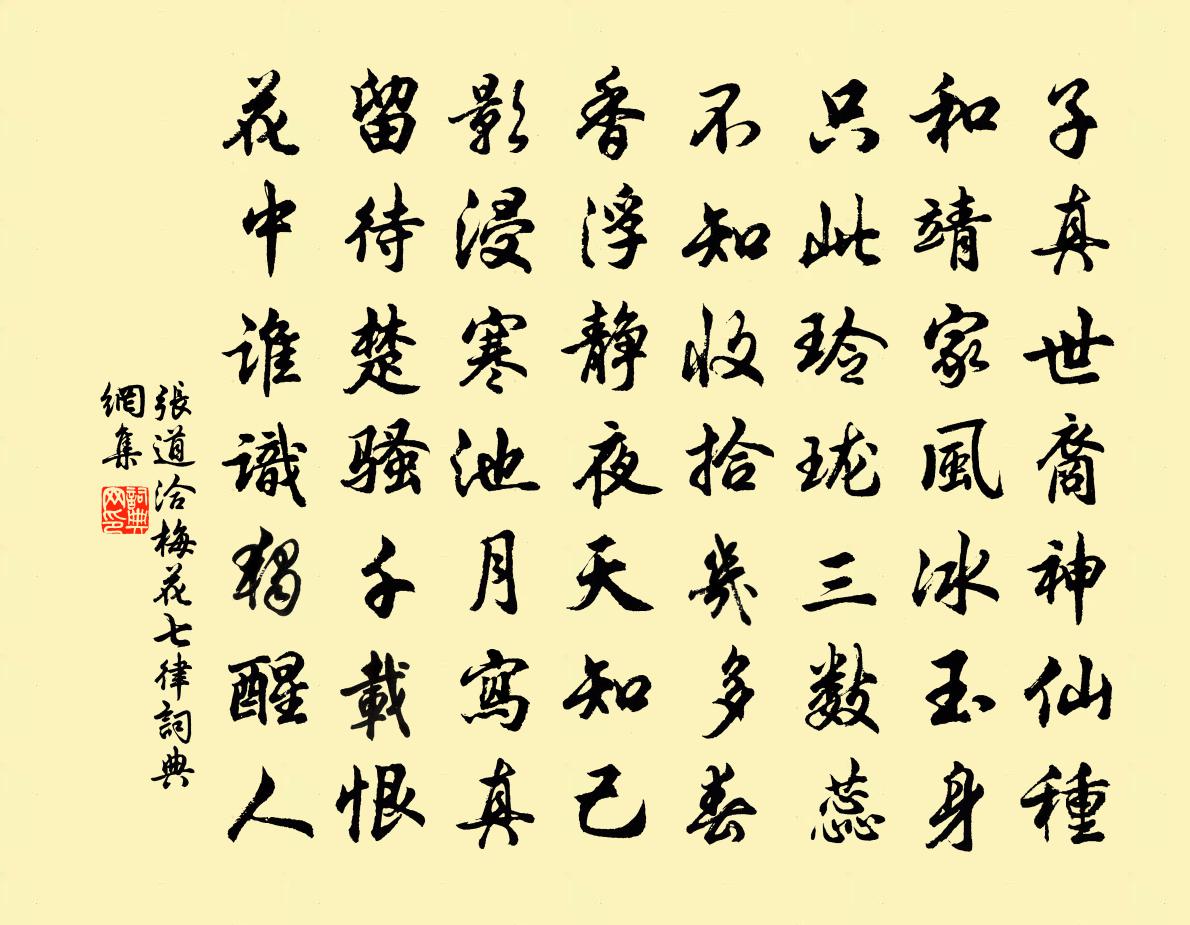 子真世裔神仙種
和靖家風冰玉身
只此玲珑三數蕊
不知收拾幾多春
香浮静夜天知己
影浸寒池月寫真
留待楚騷千載恨
花中誰識獨醒人
張道洽梅花七律詞典
網集
詞典
网印